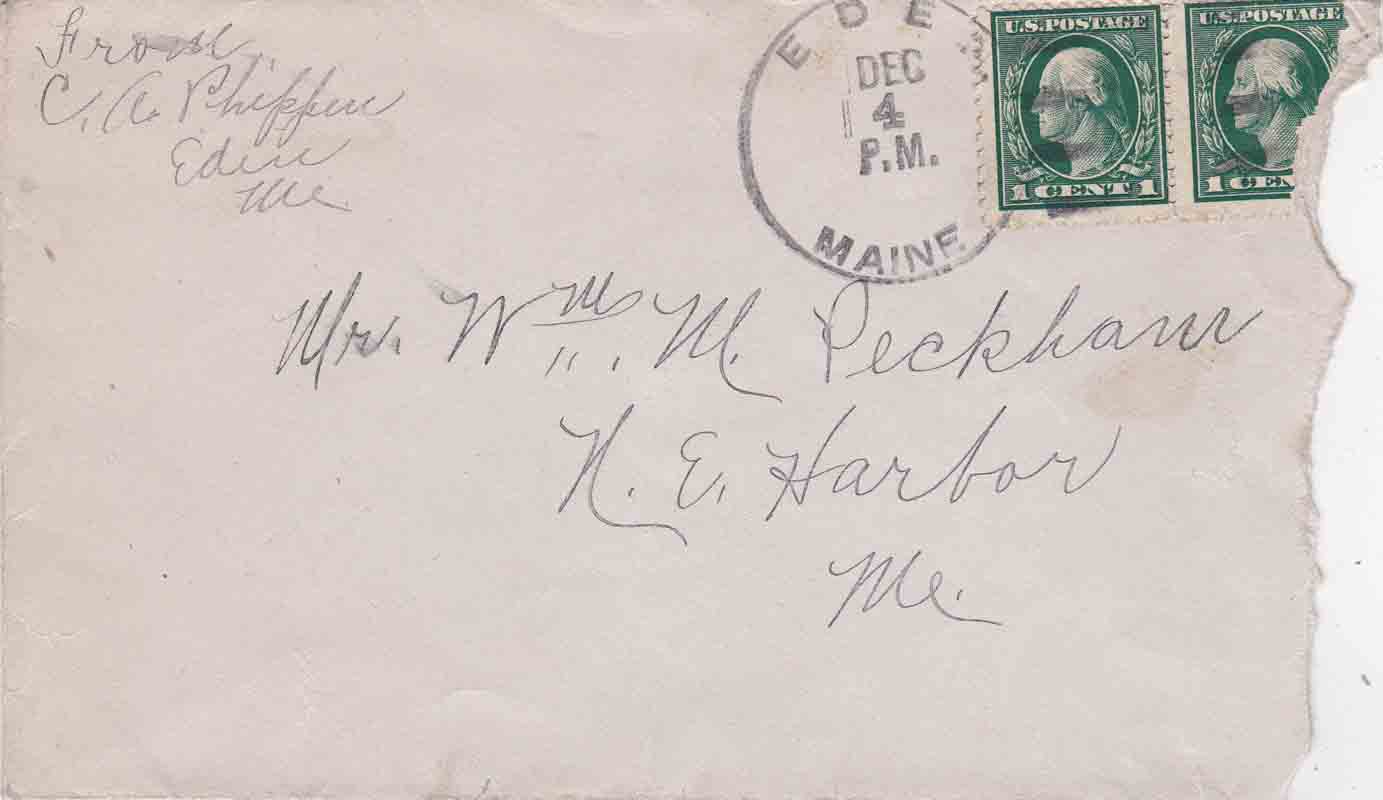 From,
C. A. Phippen
Eden
Me
EDE
DEC
4
P.M.
MAINE
U.S. POSTAGE
1 CENT 1
U.S. POSTAGE
1 CEN
Mr. Wm. M. Peckham
N. E. Harbor
Me.